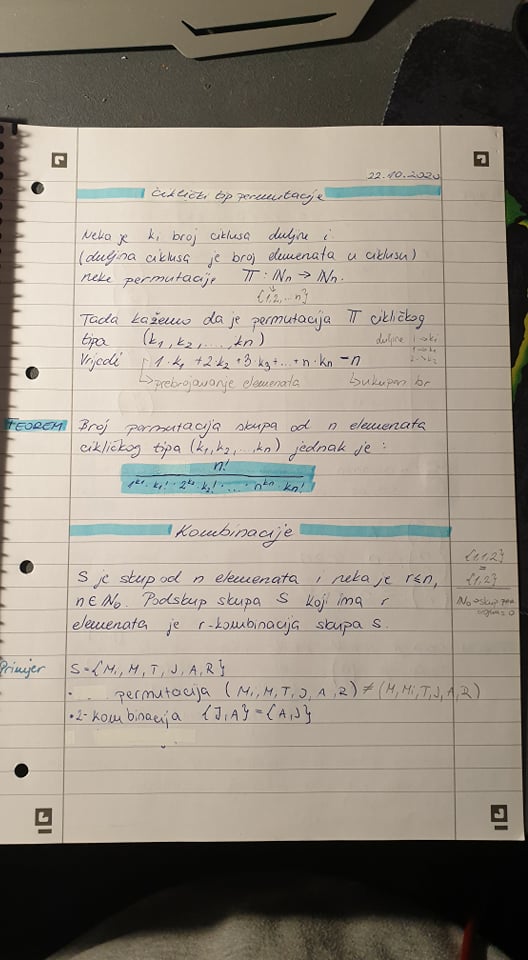 22.10.2020
Ciklički tip permutacije
Neka je ki broj ciklusa duljine i
(duljina ciklusa je broj elemenata u ciklusu)
neke permutacije π : ℕn → ℕn.
{1,2,...n}
Tada kažemo da je permutacija π cikličkog
tipa (k1, k2, ..., kn)
duljine i → ki
1 → k1
2 → k2
Vrijedi 1·k1 + 2·k2 + 3·k3 + ... + n·kn = n
↳ prebrojavanje elemenata ↳ ukupan br
TEOREM Broj permutacija skupa od n elemenata
cikličkog tipa (k1, k2, ..., kn) jednak je :
n!
1^k1 · k1! · 2^k2 · k2! · ... · n^kn · kn!
Kombinacije
{1,1,2}
=
{1,2}
S je skup od n elemenata i neka je r≤n,
n ∈ ℕ0. Podskup skupa S koji ima r
ℕ0 → skup
elemenata je r-kombinacija skupa S.
Primjer S = {Mi, M, T, J, A, R}
· permutacija (Mi, M, T, J, A, R) ≠ (M, Mi, T, J, A, R)
· 2-kombinacija {J, A} = {A, J}